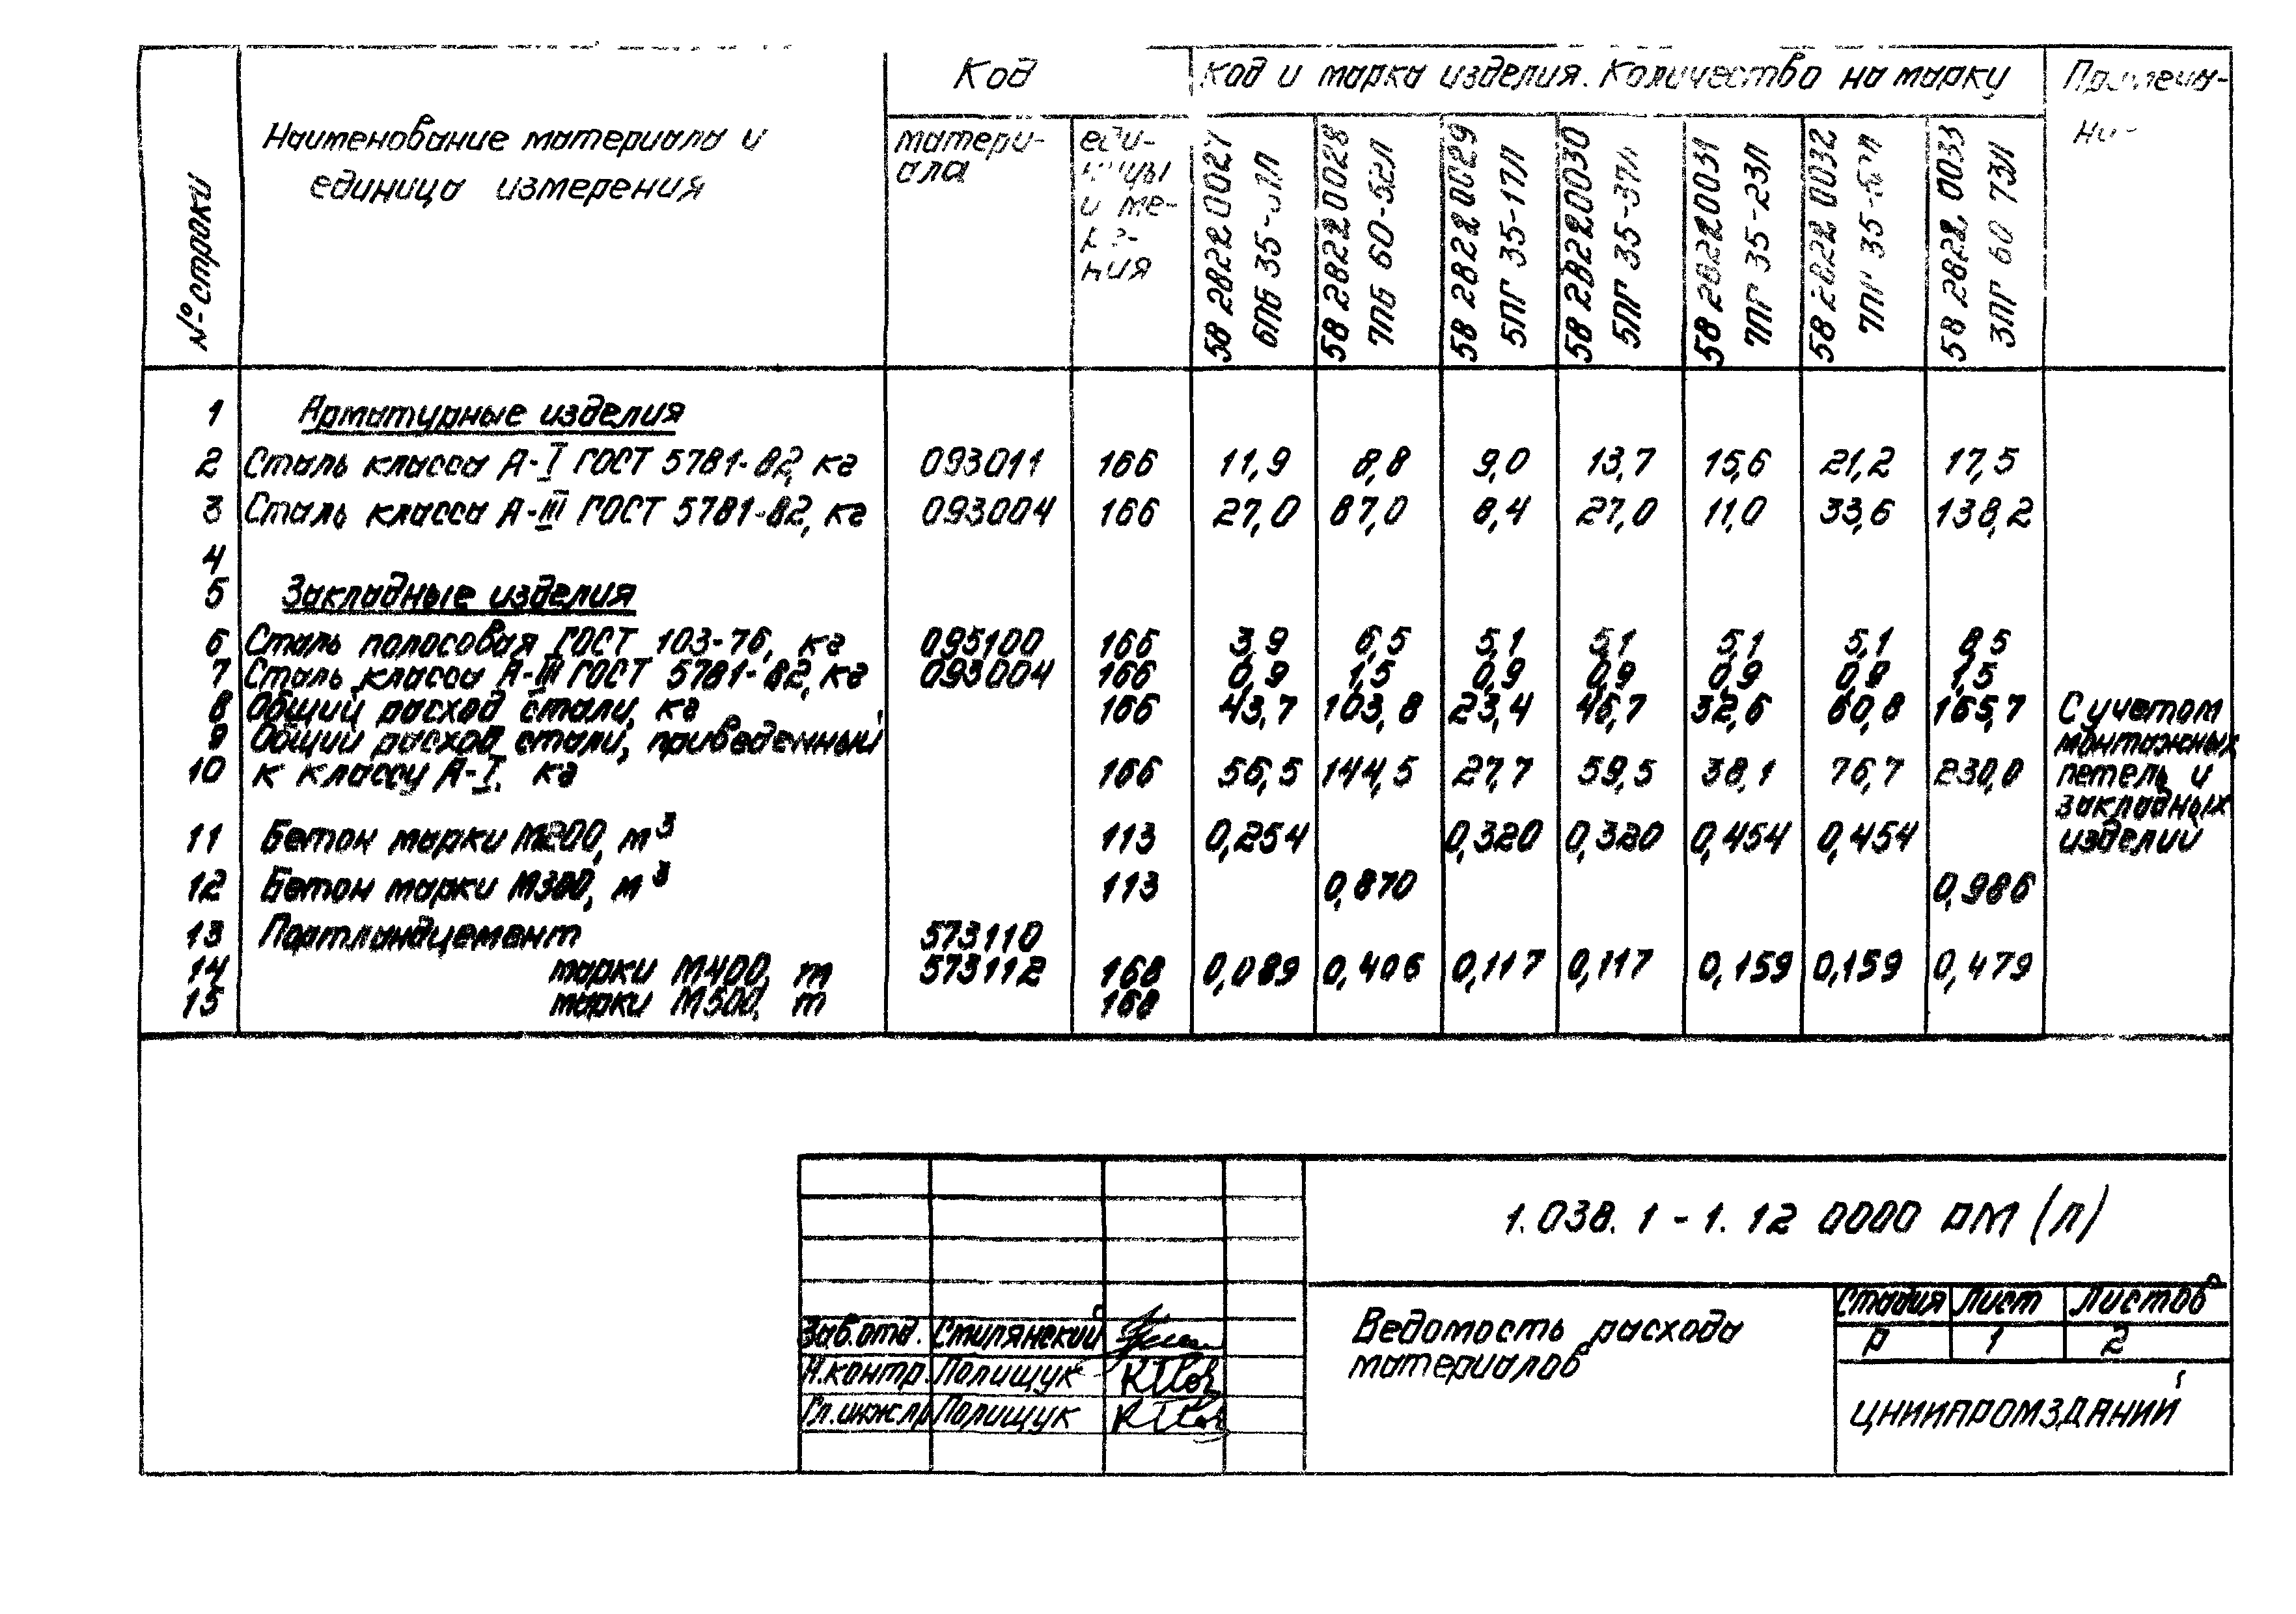 Код
Код и марка изделия. Количество на марку
Наименование материала и
единица измерения
№ строки
матери-
ала
еди-
ницы
и ме-
ния
58 2822 0027
6ПБ 35-
58 2822 0028
7ПБ 60-52Л
58 2822 0029
5ПГ 35-17Л
58 2822 0030
5ПГ 35-37Л
58 2822 0031
7ПГ 35-23Л
58 2822 0032
7ПГ 35-
58 2822 0033
3ПГ 60 73Л
1 Арматурные изделия
2 Сталь класса А-I ГОСТ 5781-82, кг 093011 166 11,9 8,8 9,0 13,7 15,6 21,2 17,5
3 Сталь класса А-III ГОСТ 5781-82, кг 093004 166 27,0 87,0 8,4 27,0 11,0 33,6 138,2
4
5 Закладные изделия
6 Сталь полосовая ГОСТ 103-76, кг 095100 166 3,9 6,5 5,1 5,1 5,1 5,1 8,5
7 Сталь класса А-III ГОСТ 5781-82, кг 093004 166 0,9 1,5 0,9 0,9 0,9 0,9 1,5
8 Общий расход стали, кг 166 43,7 103,8 23,4 46,7 32,6 60,8 165,7 С учетом
9 Общий расход стали, приведенный монтажных
10 к классу А-I, кг 166 56,5 144,5 27,7 59,5 38,1 76,7 230,0 петель и
закладных
11 Бетон марки М200, м³ 113 0,254 0,320 0,320 0,454 0,454 изделий
12 Бетон марки М300, м³ 113 0,870 0,986
13 Портландцемент 573110
14 марки М400, т 573112 168 0,089 0,406 0,117 0,117 0,159 0,159 0,479
15 марки М500, т 168
1.038.1-1.12 0000 РМ (л)
Ведомость расхода
материалов
Стадия Лист Листов
Р 1 2
Зав.отд. Стилянский
Н.контр. Полищук
Гл.инж.пр Полищук
ЦНИИПРОМЗДАНИЙ